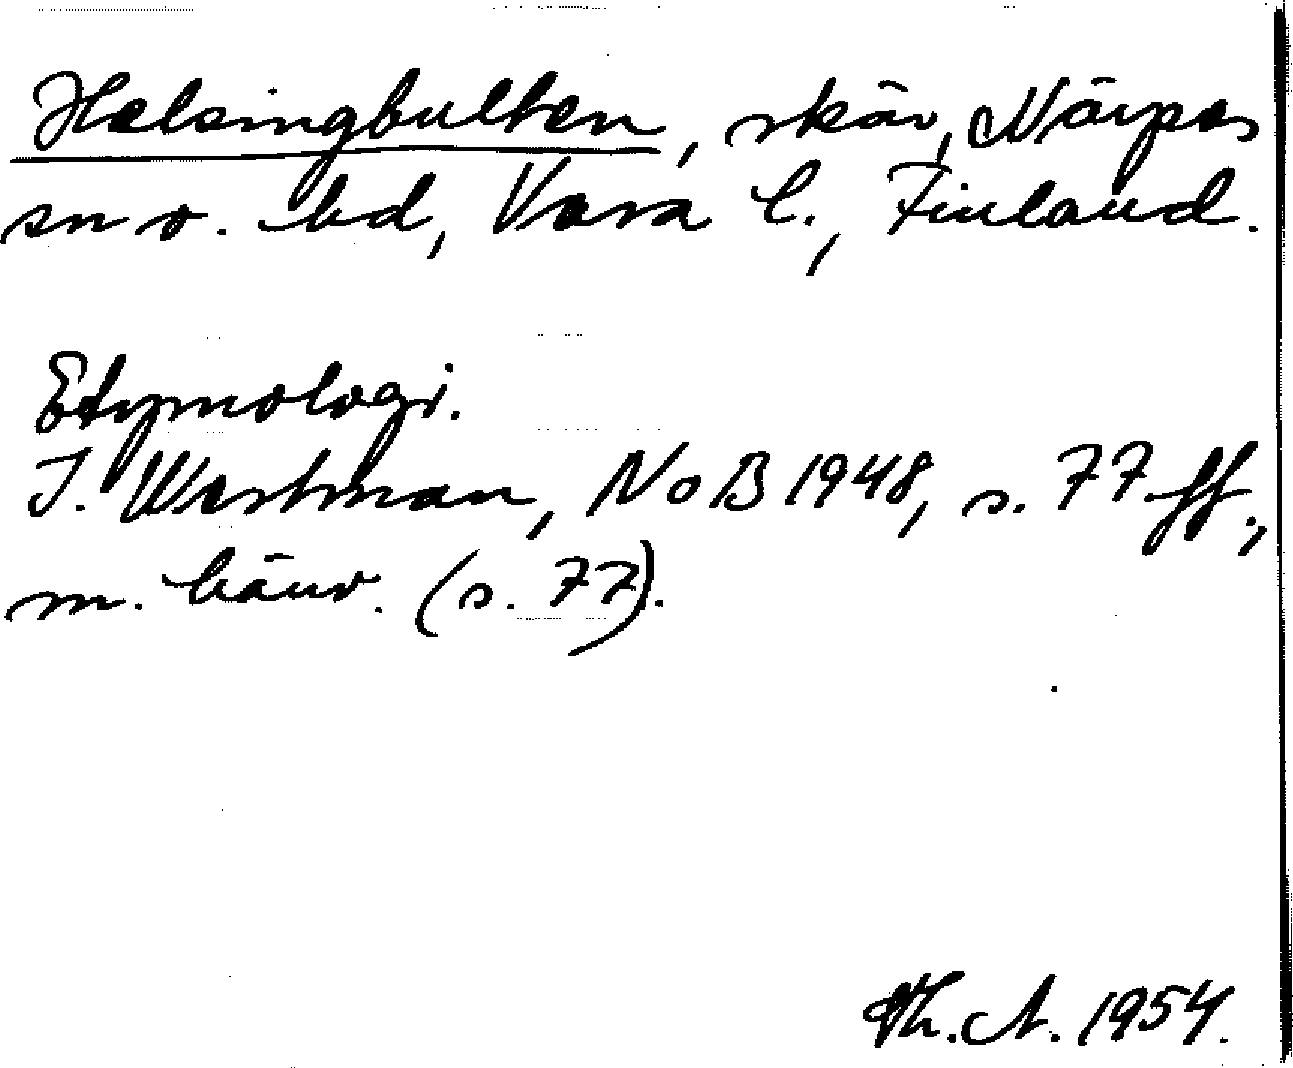 Helsingbulten, skär, Närpes
sn o. hd, Vasa l., Finland.
Etymologi.
I. Westman, NoB 1948, s. 77 ff.,
m. hänv. (s. 77).
Th. A. 1954.